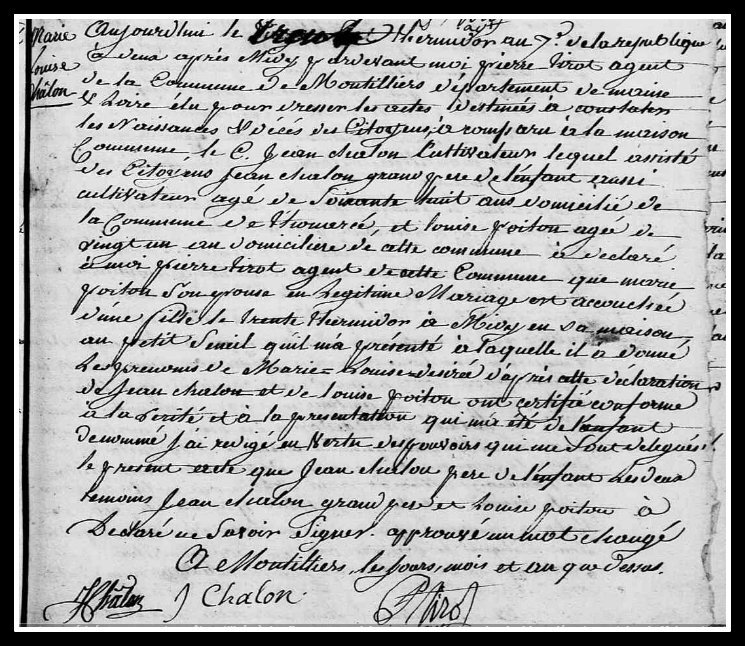 Marie
Louise
Châlon
Aujourdhui le trente thermidor an 7.e de la republique
à deux après Midy pardevant moi pierre tirot agent
de la Commune de Montilliers département de maine
& Loire élu pour dresser les actes destinés à constater
les Naissances & décés des Citoyens, à comparu à la maison
Commune le C. Jean chalon Cultivateur lequel assisté
des Citoyens Jean chalon grand pere de l'enfant aussi
cultivateur agé de Soixante huit ans domicilié de
la Commune de thouarcé, et louise poiton agée de
vingt un an domiciliére de cette commune à déclaré
à moi pierre tirot agent de cette Commune que marie
poiton Son epouse en Legitime Mariage est accouchée
d'une fille le trente thermidor à Midy en sa maison
au petit Seuil quil ma présenté à laquelle il à donné
les prenoms de Marie=Louise desirée d'après cette déclaration
de Jean chalon et de louise poiton ont certifié conforme
à la Vérité et à la présentation qui m'a été de l'enfant
denommé J'ai redigé en Vertu des pouvoirs qui me sont delegués
le present acte que Jean Chalon pere de l'enfant Les deux
temoins Jean chalon grand pere et Louise poiton à
Declaré ne Savoir Signer. approuvé un mot changé
A Montilliers, les Jours, mois et an que dessus.
Châlon J Chalon. P Tirot